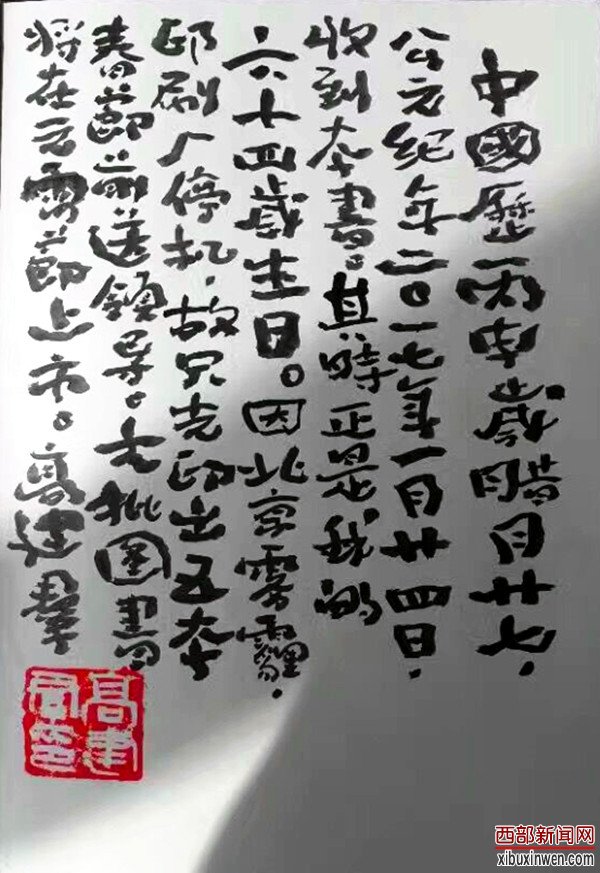 中國歷丙申歲腊月廿七，
公元纪年二〇一七年一月廿四日，
收到本書。其時正是我的
六十四歲生日。因北京雾霾，
印刷厂停机，故只先印出五本
春節前送領导。大批圖書
将在元宵節上市。高建群
高建群印
西部新闻网
xibuxinwen.com